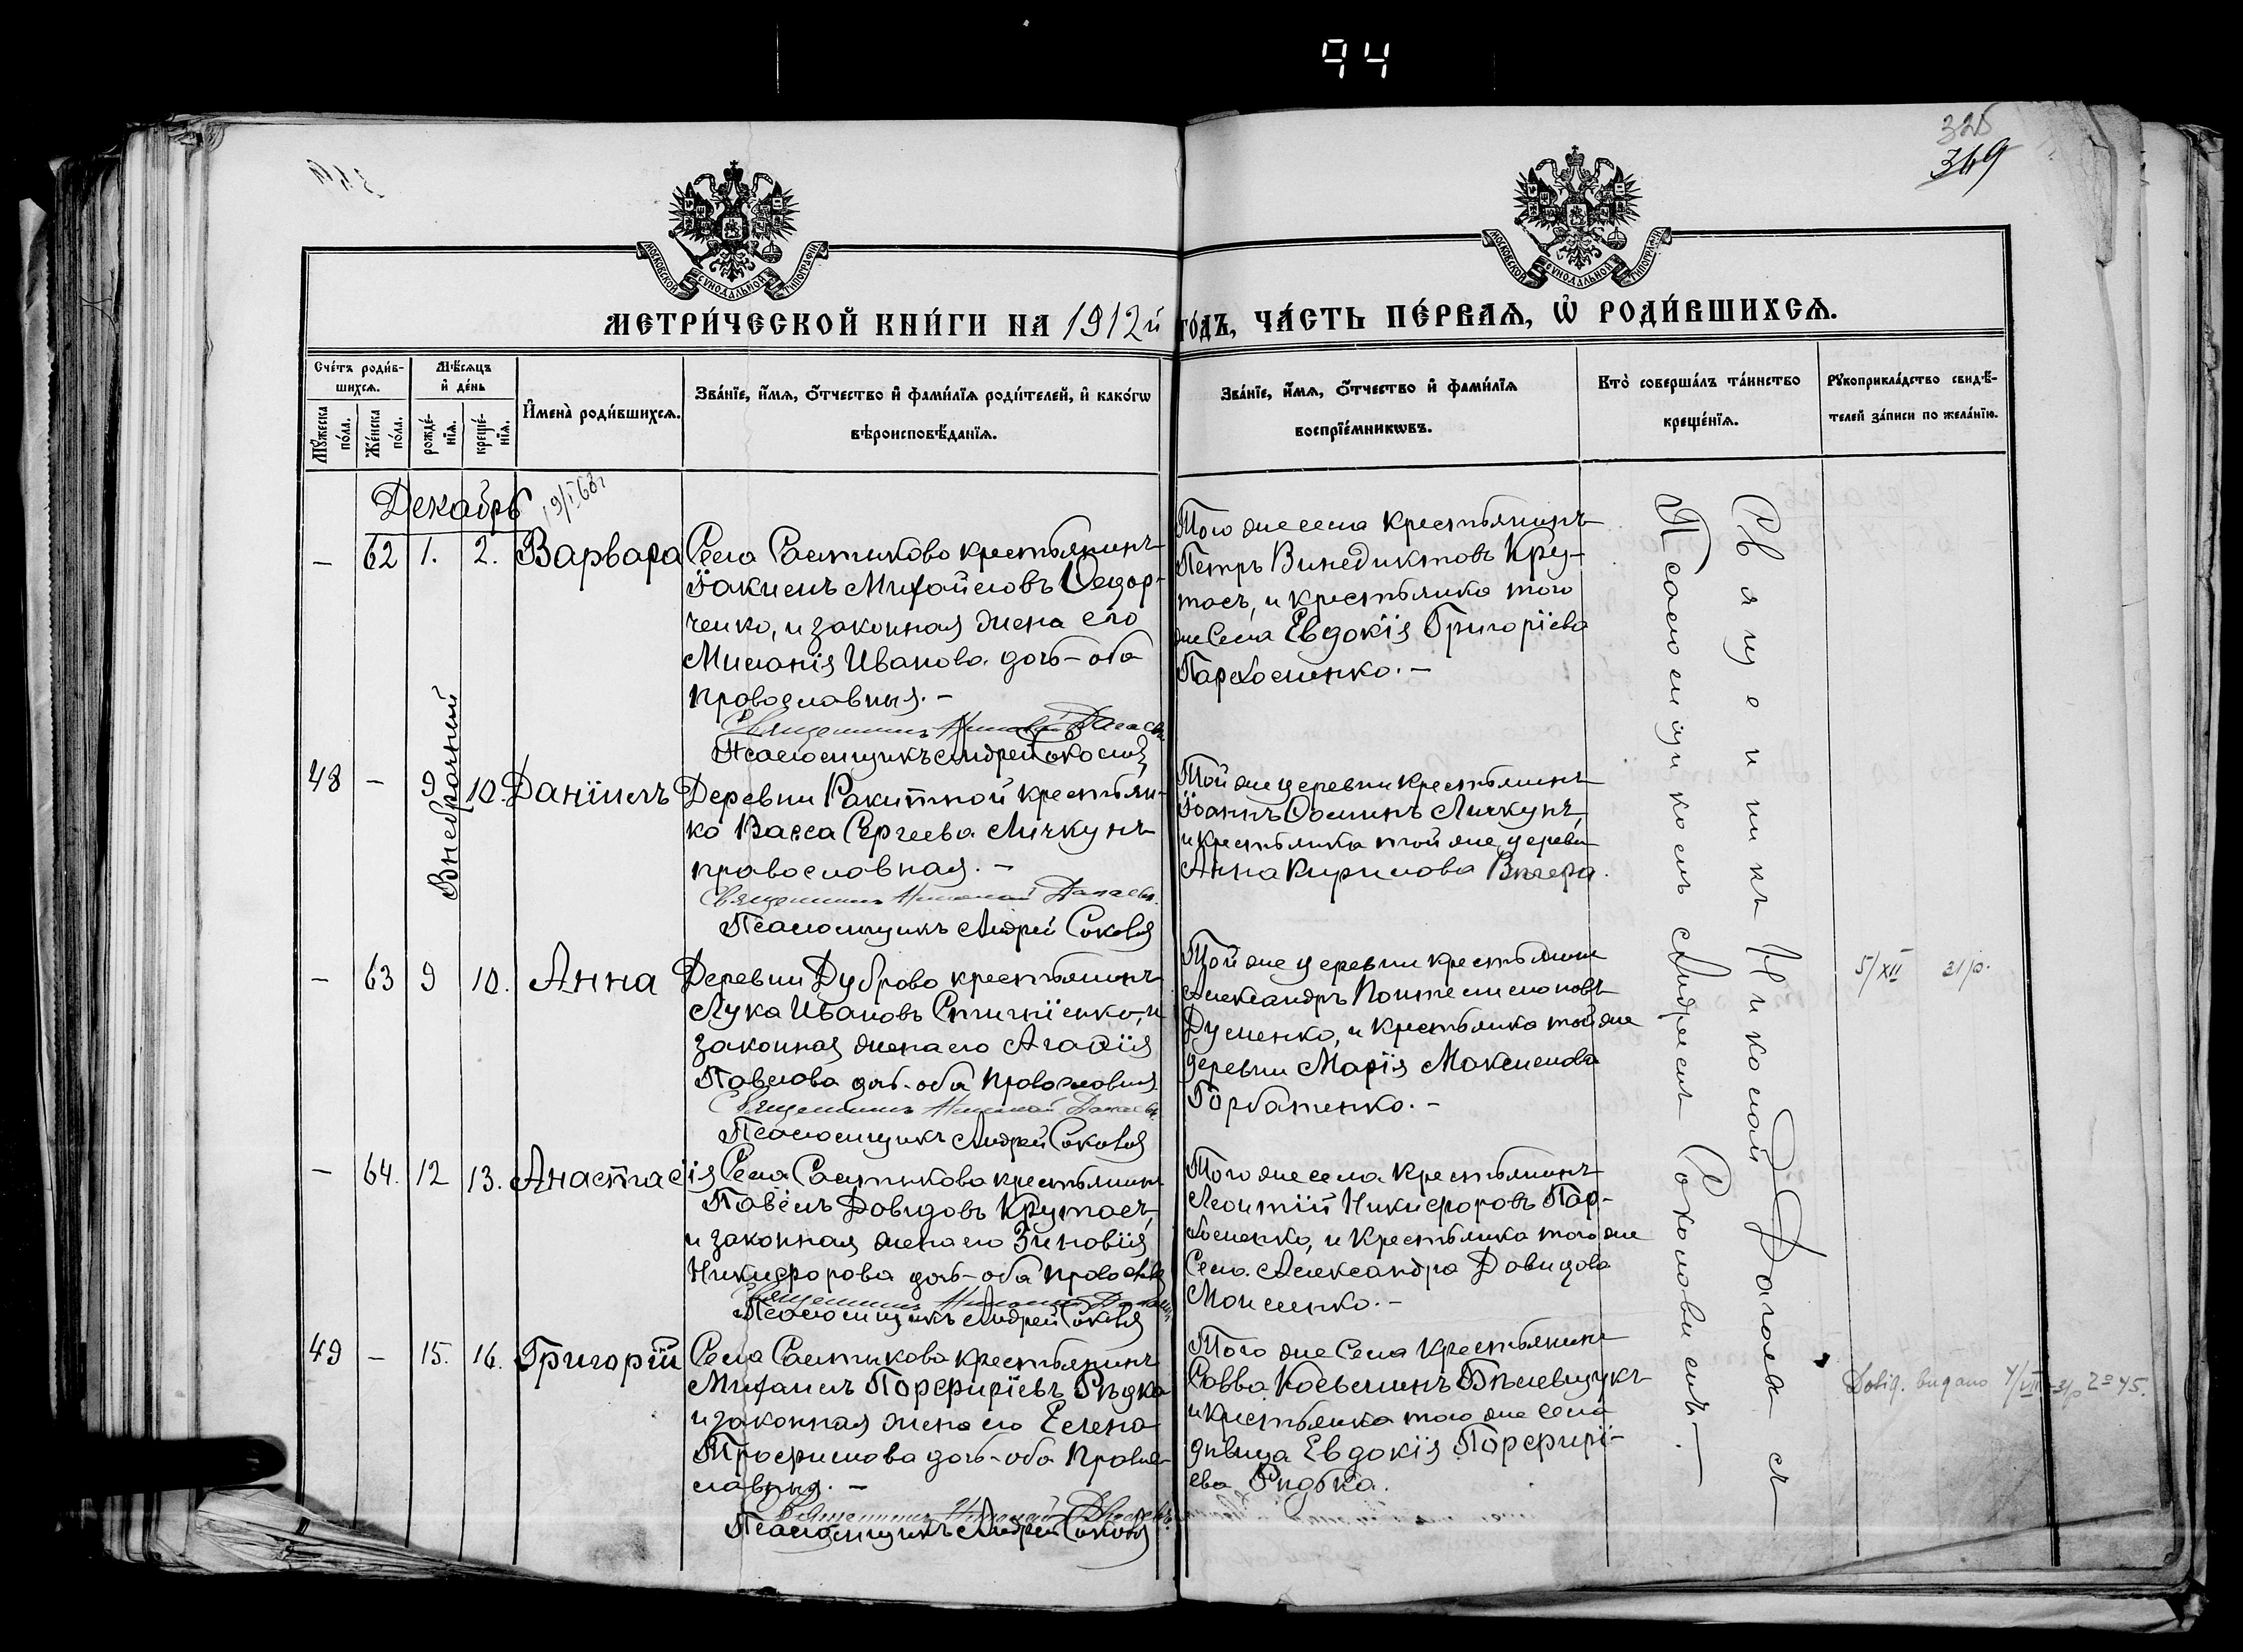 94
325
349
МОСКОВСКОЙ СѴНОДАЛЬНОЙ ТИПОГРАФІИ
МОСКОВСКОЙ СѴНОДАЛЬНОЙ ТИПОГРАФІИ
МЕТРИ́ЧЕСКОЙ КНИ́ГИ НА 1912й го́дъ, ЧА́СТЬ ПЕ́РВАѦ, Ѡ҆ РОДИ́ВШИХСѦ.
Сче́тъ роди́в-
шихсѧ.
Мꙋ́жеска по́ла.
Же́нска по́ла.
Мѣ́сѧцъ и҆ де́нь
рожде́-
нїѧ.
креще́-
нїѧ.
И҆мена̀ роди́вшихсѧ.
Зва́нїе, и҆́мѧ, ѻ҆́тчество и҆ фами́лїѧ роди́телей, и҆ како́гѡ
вѣроисповѣ́данїѧ.
Зва́нїе, и҆́мѧ, ѻ҆́тчество и҆ фами́лїѧ
воспрїе́мникѡвъ.
Кто̀ соверша́лъ та́инство
креще́нїѧ.
Рꙋкоприкла́дство свидѣ́-
телей за́писи по жела́нїю.
Декабрь
— 62 1. 2. Варвара
Села Салтыково крестьянинъ
Іакимъ Михайловъ Ѳедор-
ченко, и законная жена его
Миланія Иванова дочь – оба
православныя. –
Священникъ Николай
Псаломщикъ Андрей Соколов
Того же села крестьянинъ
Петръ Винедиктовъ Кру-
тось, и крестьянка того
же села Евдокія Григоріева
Пархоменко. –
48 — 9 10. Даніилъ
Внебрачный
Деревни Ракитной крестьян-
ка Васса Сергеева Личкунъ
православная. –
Священникъ Николай
Псаломщикъ Андрей Соколов
Той же деревни крестьянинъ
Іоаннъ Ѳоминъ Личкунъ,
и крестьянка той же деревни
Анна Кирилова Вечера.
— 63 9 10. Анна
Деревни Дуброво крестьянинъ
Лука Ивановъ Степ
законная жена его Агафія
Павлова дочь – оба православныя
Священникъ Николай
Псаломщикъ Андрей Соколов
Той же деревни крестьянинъ
Александръ Пантелимоновъ
Дуженко, и крестьянка той же
деревни Марія Максимова
Горбатенко. –
5/XII 31 р.
— 64. 12 13. Анастасія
Села Салтыкова крестьянинъ
Павелъ Давидовъ Крутось,
и законная жена его Зиновія
Никифорова дочь – оба правосл
Священникъ Николай
Псаломщикъ Андрей Соколов
Того же села крестьянинъ
Леонтій Никифоровъ Пар-
хоменко, и крестьянка того же
села Александра Давидова
Моисеенко. –
49 — 15. 16. Григорій
Села Салтыкова крестьянинъ
Михаилъ Порфиріевъ Рѣдка
и законная жена его Елена
Трофимова дочь – оба право-
славныя. –
Священникъ Николай
Псаломщикъ Андрей Соколов
Того же села крестьянинъ
Савва Косьминъ
и крестьянка того же села
дѣвица Евдокія Порфирі-
ева Рѣдька.
Священникъ Николай
Псаломщикомъ Андреемъ Соколовимъ. —
Довід. видано
45.